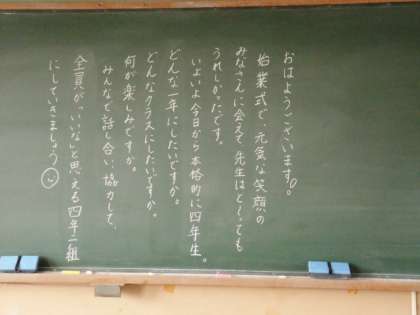 おはようございます。
始業式で、元気な笑顔の
みなさんに会えて先生はとっても
うれしかったです。
いよいよ今日から本格的に四年生。
どんな一年にしたいですか。
どんなクラスにしたいですか。
何が楽しみですか。
みんなで話し合い、協力して、
全員が“いいな”と思える四年一組
にしていきましょう